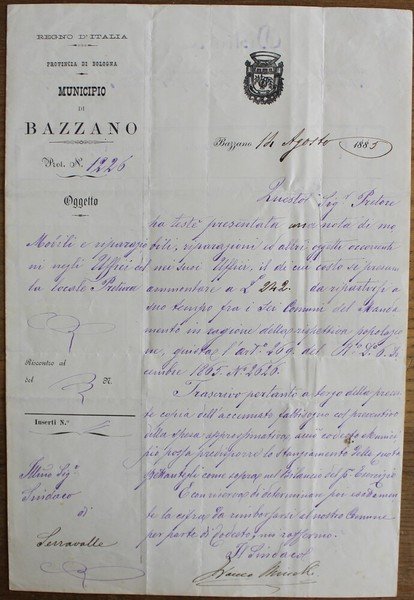 REGNO D'ITALIA
PROVINCIA DI BOLOGNA
MUNICIPIO
DI
BAZZANO
Prot. N. 1226
Oggetto
Mobili e riparazio
ni negli Uffici del
la locale Pretura
Riscontro al
del N.
Inserti N.
Illmo Sig.
Sindaco
di
Serravalle
Bazzano 14 Agosto 1885
Questo Sig. Pretore
ha testè presentata una nota di mo
bili, riparazioni ed altri oggetti occorenti
nei suoi Uffici, il di cui costo si presume
ammontare a L 242. da repartirsi a
suo tempo fra i sei Comuni del Manda
mento in ragione della rispettiva popolazio
ne, giusta l'art. 269 del R. D. 6 Di
cembre 1865 N. 2626.
Trascrivo pertanto a tergo della presen
te copia dell'accennato fabbisogno col preventivo
della spesa approssimativa, onde codesto Munici
pio possa predisporre lo stanziamento della quota
spettantegli come sopra nel Bilancio del p. Esercizio
la cifra da rimborsarsi al nostro Comune
per parte di codesto, mi raffermo.
Il Sindaco